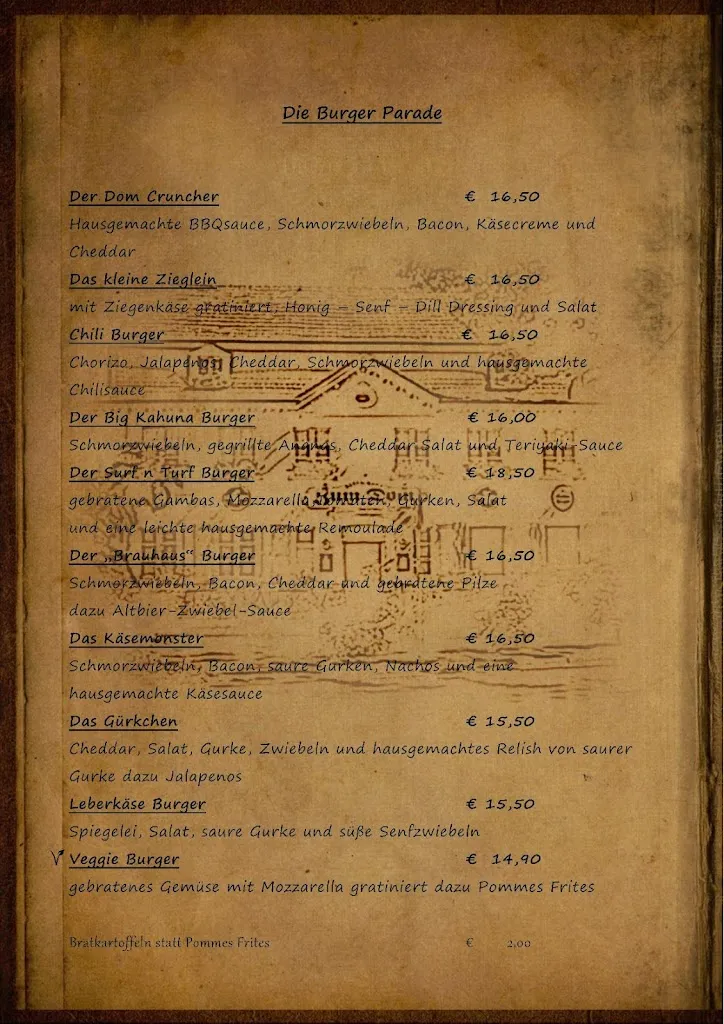 Die Burger Parade
Der Dom Cruncher € 16,50
Hausgemachte BBQsauce, Schmorzwiebeln, Bacon, Käsecreme und
Cheddar
Das kleine Zieglein € 16,50
mit Ziegenkäse gratiniert, Honig – Senf – Dill Dressing und Salat
Chili Burger € 16,50
Chorizo, Jalapenos, Cheddar, Schmorzwiebeln und hausgemachte
Chilisauce
Der Big Kahuna Burger € 16,00
Schmorzwiebeln, gegrillte Ananas, Cheddar Salat und Teriyaki-Sauce
Der Surf n Turf Burger € 18,50
gebratene Gambas, Mozzarella Tomaten, Gurken, Salat
und eine leichte hausgemachte Remoulade
Der „Brauhaus“ Burger € 16,50
Schmorzwiebeln, Bacon, Cheddar und gebratene Pilze
dazu Altbier-Zwiebel-Sauce
Das Käsemonster € 16,50
Schmorzwiebeln, Bacon, saure Gurken, Nachos und eine
hausgemachte Käsesauce
Das Gürkchen € 15,50
Cheddar, Salat, Gurke, Zwiebeln und hausgemachtes Relish von saurer
Gurke dazu Jalapenos
Leberkäse Burger € 15,50
Spiegelei, Salat, saure Gurke und süße Senfzwiebeln
V Veggie Burger € 14,90
gebratenes Gemüse mit Mozzarella gratiniert dazu Pommes Frites
Bratkartoffeln statt Pommes Frites € 2,00